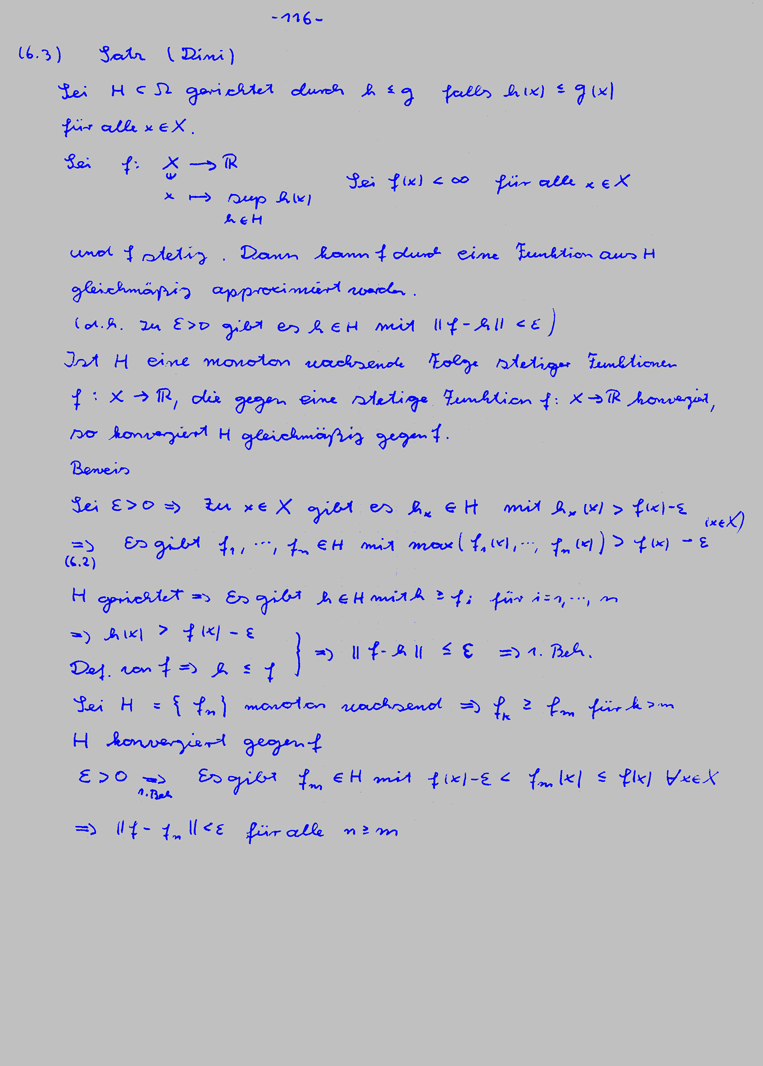 -116-
(6.3) Satz (Dini)
Sei H ⊂ Ω gerichtet durch h ≤ g falls h(x) ≤ g(x)
für alle x ∈ X.
Sei f: X → ℝ
x ↦ sup h(x) Sei f(x) < ∞ für alle x ∈ X
h ∈ H
und f stetig. Dann kann f durch eine Funktion aus H
gleichmäßig approximiert werden.
(d.h. zu ε>0 gibt es h ∈ H mit ||f-h|| < ε)
Ist H eine monoton wachsende Folge stetiger Funktionen
f : X → ℝ, die gegen eine stetige Funktion f: X → ℝ konvergiert,
so konvergiert H gleichmäßig gegen f.
Beweis
Sei ε>0 ⇒ Zu x ∈ X gibt es hₓ ∈ H mit hₓ(x) > f(x)-ε
⇒ Es gibt f₁, ..., fₙ ∈ H mit max(f₁(x), ..., fₙ(x)) > f(x) - ε (x∈X)
(6.2)
H gerichtet ⇒ Es gibt h ∈ H mit h ≥ fᵢ für i=1, ..., n
⇒ h(x) > f(x) - ε
Def. von f ⇒ h ≤ f } ⇒ ||f-h|| ≤ ε ⇒ 1. Beh.
Sei H = {fₙ} monoton wachsend ⇒ fₖ ≥ fₘ für k>m
H konvergiert gegen f
ε>0 ⇒ Es gibt fₘ ∈ H mit f(x)-ε < fₘ(x) ≤ f(x) ∀x∈X
1. Beh
⇒ ||f - fₙ|| < ε für alle n ≥ m